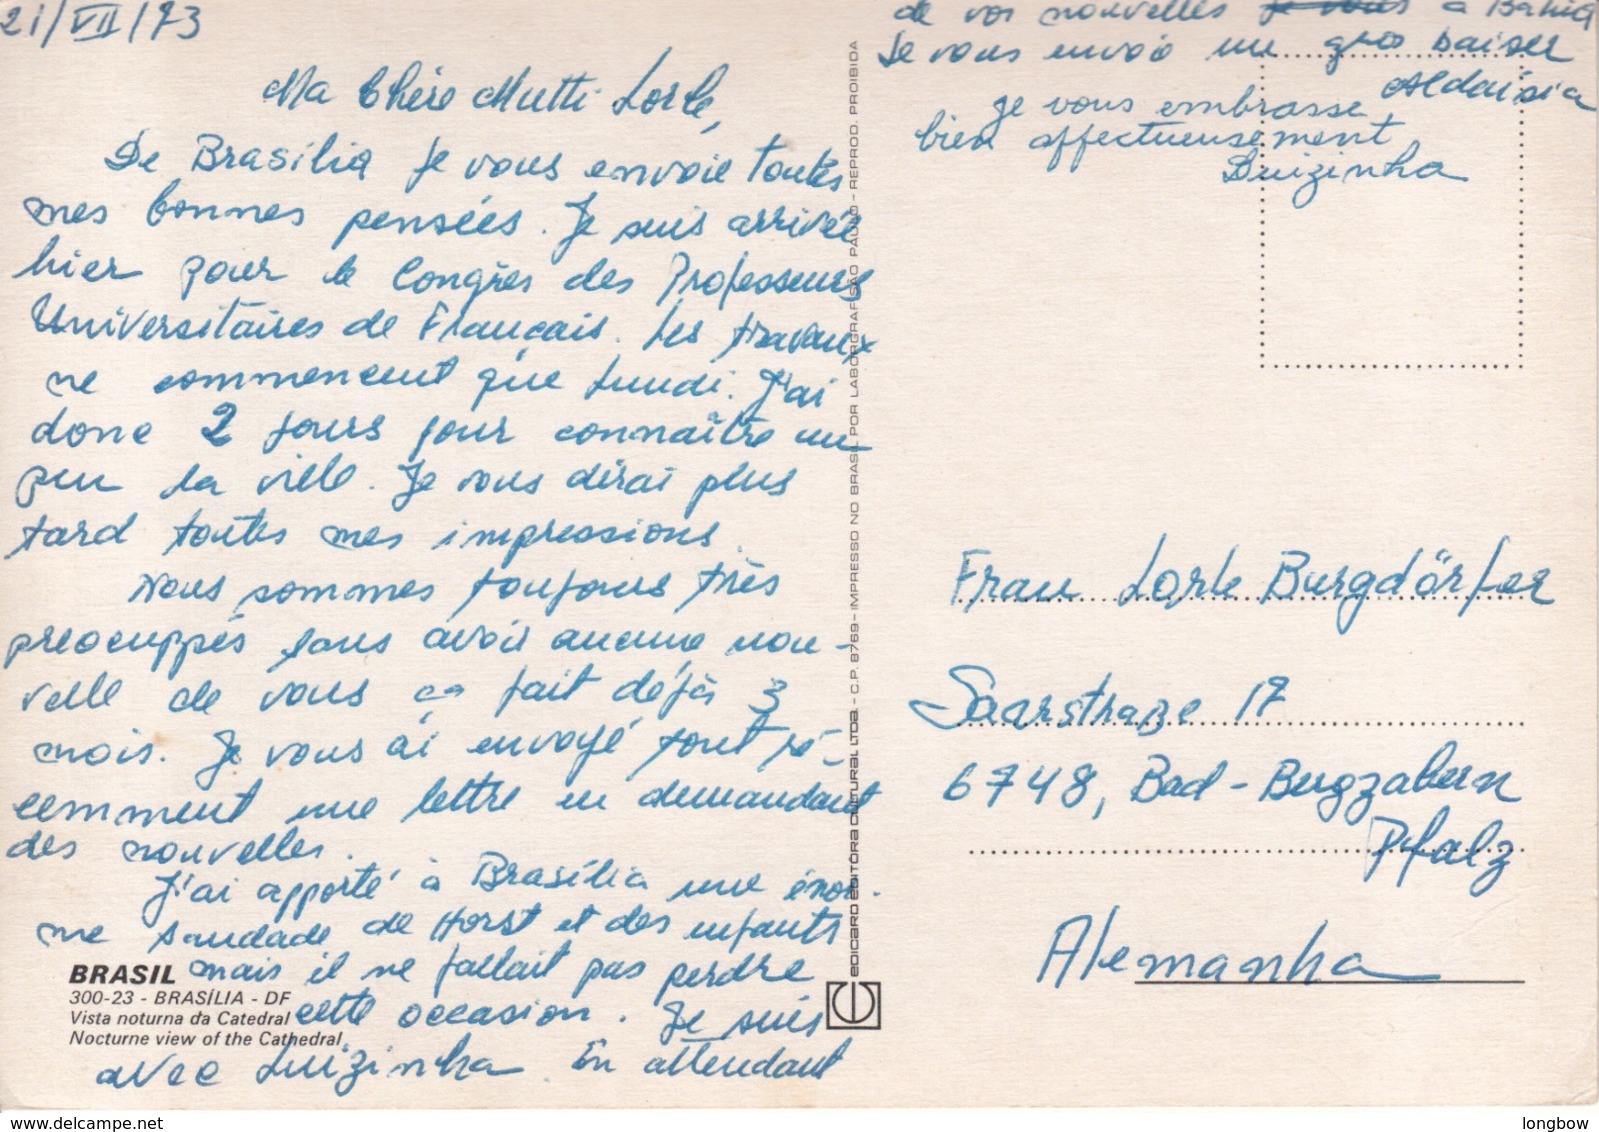 21/VII/73
Ma Chère Mutti Lorle,
De Brasília Je vous envoie toutes
mes bonnes pensées. Je suis arrivée
hier pour le Congrès des Professeurs
Universitaires de Français. Les travaux
ne commencent que Lundi. J'ai
donc 2 jours pour connaître un
peu la ville. Je vous dirai plus
tard toutes mes impressions.
Nous sommes toujours très
préocuppés sans avoir aucune nou-
velle de vous ça fait déjà 3
mois. Je vous ai envoyé tout ré-
cemment une lettre en demandant
des nouvelles.
J'ai apporté à Brasília une énor-
me saudade de Horst et des enfants
mais il ne fallait pas perdre
cette occasion. Je suis
avec Luizinha. En attendant
de vos nouvelles à Bahia
Je vous envoie un gros baiser
Aldaísia
je vous embrasse
bien affectueusement
Luizinha
Frau Lorle Burgdörfer
Saarstraze 17
6748, Bad-Bergzabern
Pfalz
Alemanha
BRASIL
300-23 - BRASÍLIA - DF
Vista noturna da Catedral
Nocturne view of the Cathedral
EDICARD EDITÔRA CULTURAL LTDA. - C.P. 8769 - IMPRESSO NO BRASIL POR LABORGRAF - SÃO PAULO - REPROD. PROIBIDA
delcampe.net
longbow